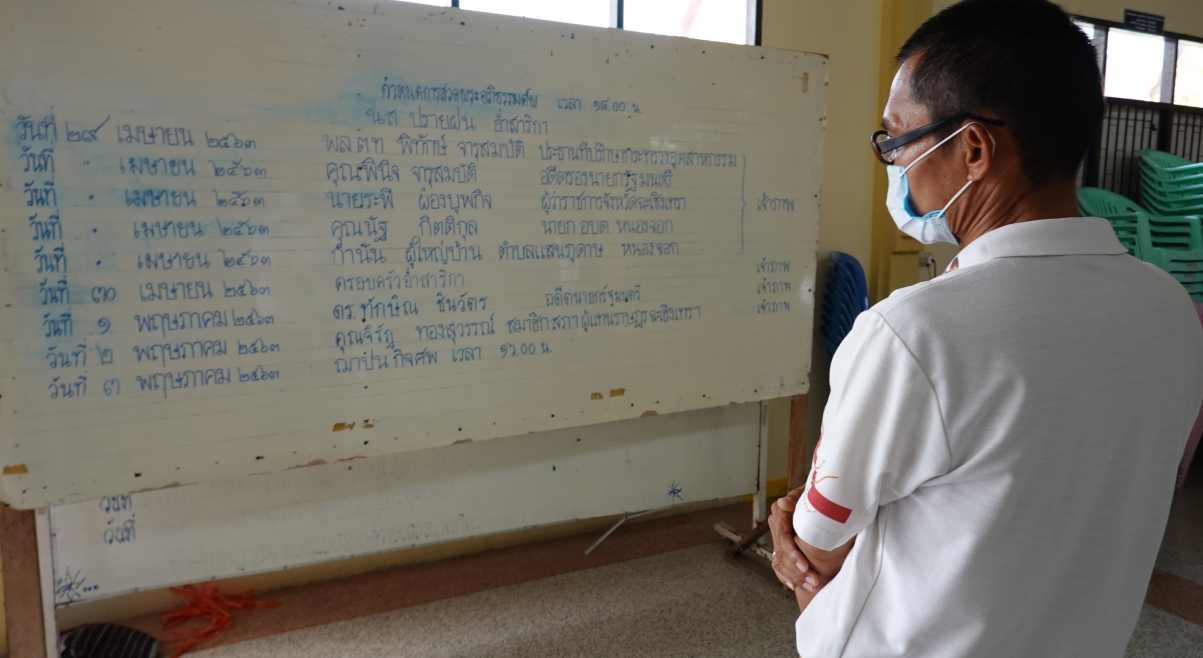 กำหนดการสวดพระอภิธรรมศพ เวลา ๑๙.๐๐ น.
น.ส ปรายฝน อ่ำสาริกา
วันที่ ๒๙ เมษายน ๒๕๖๓ พล.ต.ท พิทักษ์ จารุสมบัติ ประธานที่ปรึกษากระทรวงอุตสาหกรรม
วันที่ " เมษายน ๒๕๖๓ คุณพินิจ จารุสมบัติ อดีตรองนายกรัฐมนตรี
วันที่ " เมษายน ๒๕๖๓ นายระพี ผ่องบุพกิจ ผู้ว่าราชการจังหวัดฉะเชิงเทรา เจ้าภาพ
วันที่ " เมษายน ๒๕๖๓ คุณนัฐ กิตติกุล นายก อบต. หนองจอก
วันที่ " เมษายน ๒๕๖๓ กำนัน ผู้ใหญ่บ้าน ตำบลแสนภูดาษ หนองจอก
วันที่ ๓๐ เมษายน ๒๕๖๓ ครอบครัวอ่ำสาริกา เจ้าภาพ
วันที่ ๑ พฤษภาคม ๒๕๖๓ ดร.ทักษิณ ชินวัตร อดีตนายกรัฐมนตรี เจ้าภาพ
วันที่ ๒ พฤษภาคม ๒๕๖๓ คุณจิรัฏ ทองสุวรรณ์ สมาชิกสภาผู้แทนราษฎรฉะเชิงเทรา เจ้าภาพ
วันที่ ๓ พฤษภาคม ๒๕๖๓ ฌาปนกิจศพ เวลา ๑๖.๐๐ น.
วันที่
วันที่